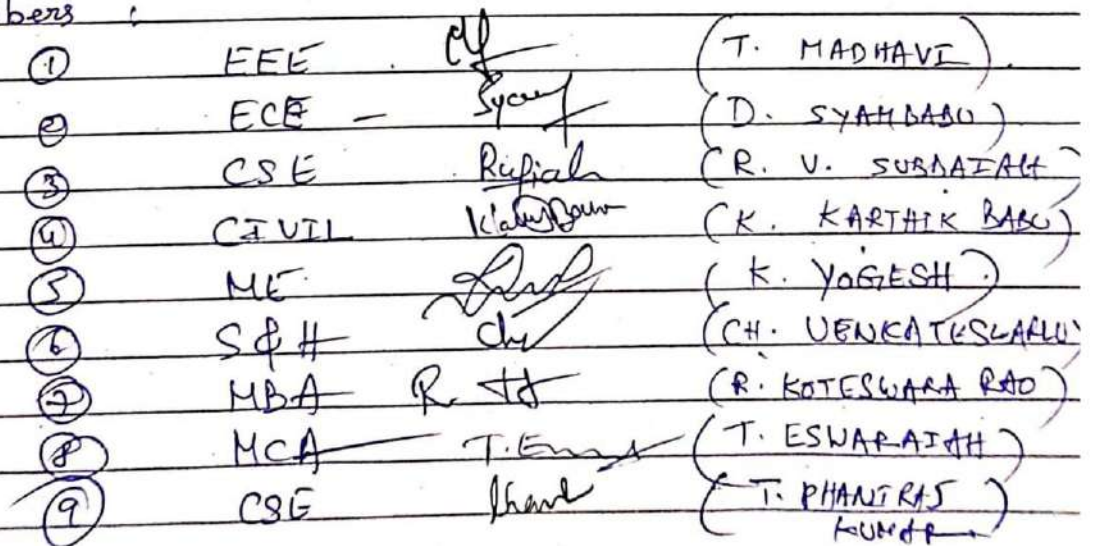 bers :
① EEE (T. MADHAVI).
② ECE - (D. SYAMBABU)
③ CSE (R. V. SUBBAIAH
④ CIVIL (K. KARTHIK BABU)
⑤ ME (K. YOGESH)
⑥ S & H (CH. VENKATESWARLU
⑦ MBA R (R. KOTESWARA RAO)
⑧ MCA (T. ESWARAIAH)
⑨ CSE (T. PHANIRAJ
KUMAR